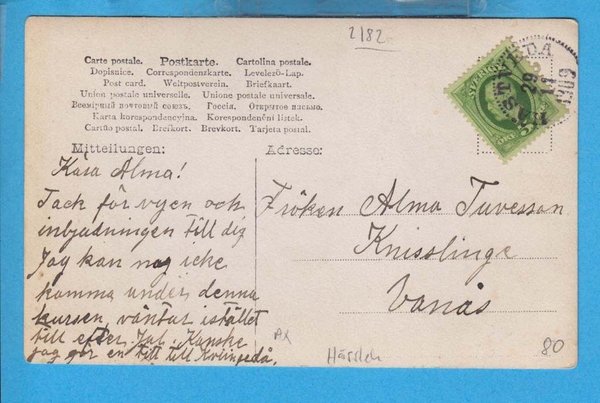 2182
Carte postale. Postkarte. Cartolina postale.
Dopisnice. Correspondenzkarte. Levelező-Lap.
Post card. Weltpostverein. Briefkaart.
Union postale universelle. Unione postale universale.
Всемірный почтовый союзъ. Россія. Открытое письмо.
Karta korespondencyjna. Korespondenční lístek.
Cartão postal. Brefkort. Brevkort. Tarjeta postal.
Mitteilungen:
Adresse:
Kära Alma!
Tack för vyen och
inbjudningen till dig
Jag kan nog icke
komma under denna
kursen, väntar istället
till efter Jul. Kanske
jag gör en titt till
Fröken Alma Tuvesson
Knisslinge
Vanås
80
29
1909